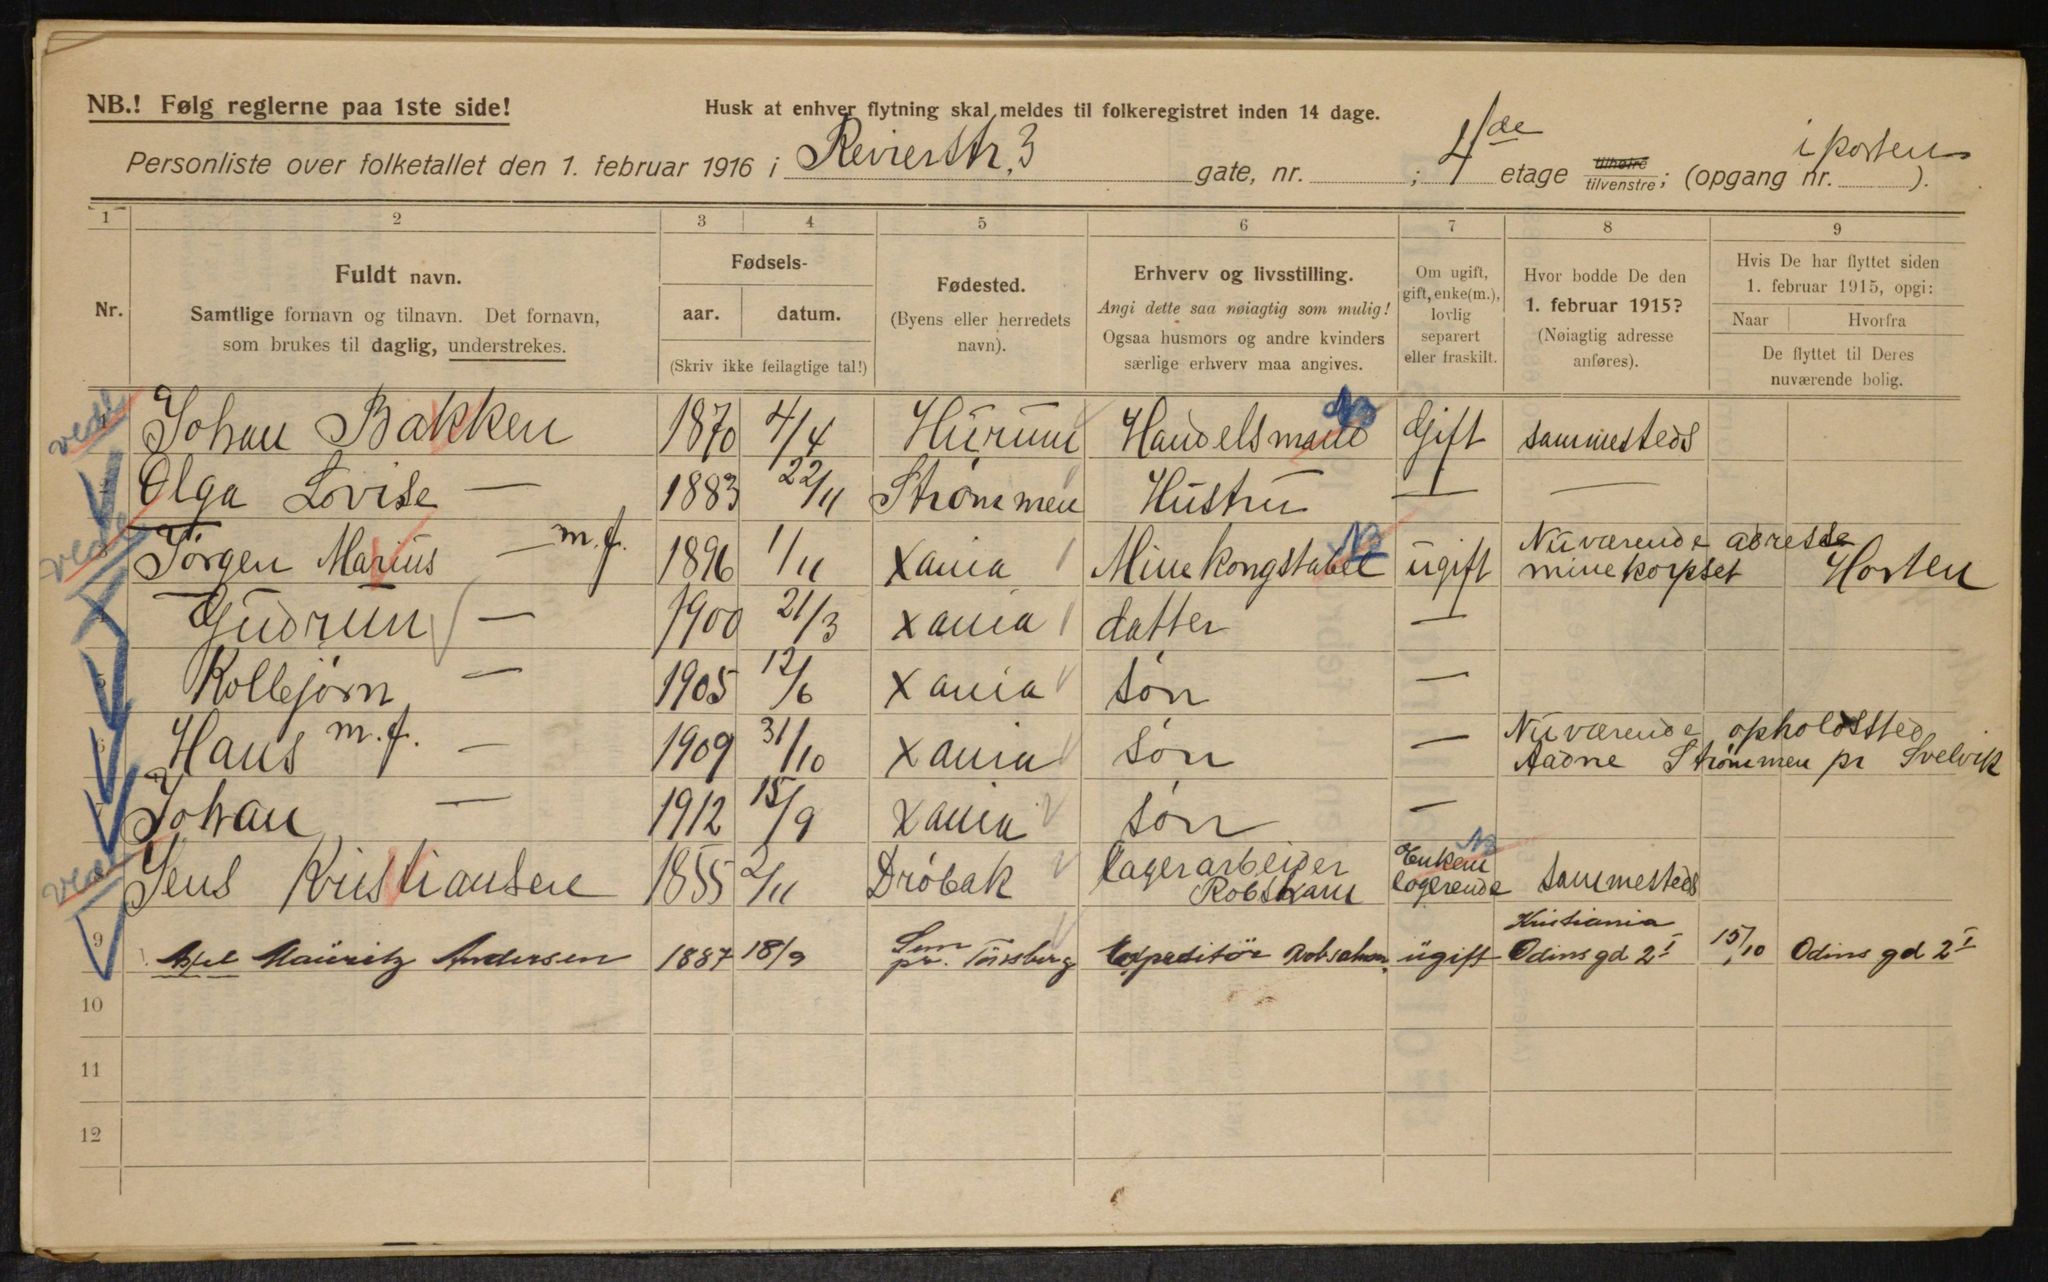 NB.! Følg reglerne paa 1ste side!
Husk at enhver flytning skal meldes til folkeregistret inden 14 dage.
Personliste over folketallet den 1. februar 1916 i Revierstr. 3 gate, nr. ; 4de etage tilhøire tilvenstre; (opgang nr. i porten ).
1 2 3 4 5 6 7 8 9
Nr.
Fuldt navn.
Samtlige fornavn og tilnavn. Det fornavn,
som brukes til daglig, understrekes.
Fødsels-
aar. datum.
(Skriv ikke feilagtige tal!)
Fødested.
(Byens eller herredets
navn).
Erhverv og livsstilling.
Angi dette saa nøiagtig som mulig!
Ogsaa husmors og andre kvinders
særlige erhverv maa angives.
Om ugift,
gift, enke(m.),
lovlig
separert
eller fraskilt.
Hvor bodde De den
1. februar 1915?
(Nøiagtig adresse
anføres).
Hvis De har flyttet siden
1. februar 1915, opgi:
Naar Hvorfra
De flyttet til Deres
nuværende bolig.
Johan Bakken 1870 4/4 Hurum Handelsmand Gift sammesteds
Olga Lovise — 1883 22/11 Strømmen Hustru — —
Jørgen Marius — m.f. 1896 1/11 Xania Minekongstabel ugift Nuværende adresse minekorpset Horten
Gudrun — 1900 21/3 Xania datter —
Kolbjørn — 1905 12/6 Xania søn —
Hans m.f. — 1909 31/10 Xania søn — Nuværende opholdssted
Aadne Strømmen pr Svelvik
Johan — 1912 15/9 Xania søn —
Jens Kristiansen 1855 2/11 Drøbak lagerarbeider Robsham Enkem logerende sammesteds
9 Axel Mauritz Andersen 1887 18/9 Sem pr. Tønsberg Expeditør Robsahm ugift Kristiania Odinsgd 2 I 15/10 Odins gd 2 I
10
11
12